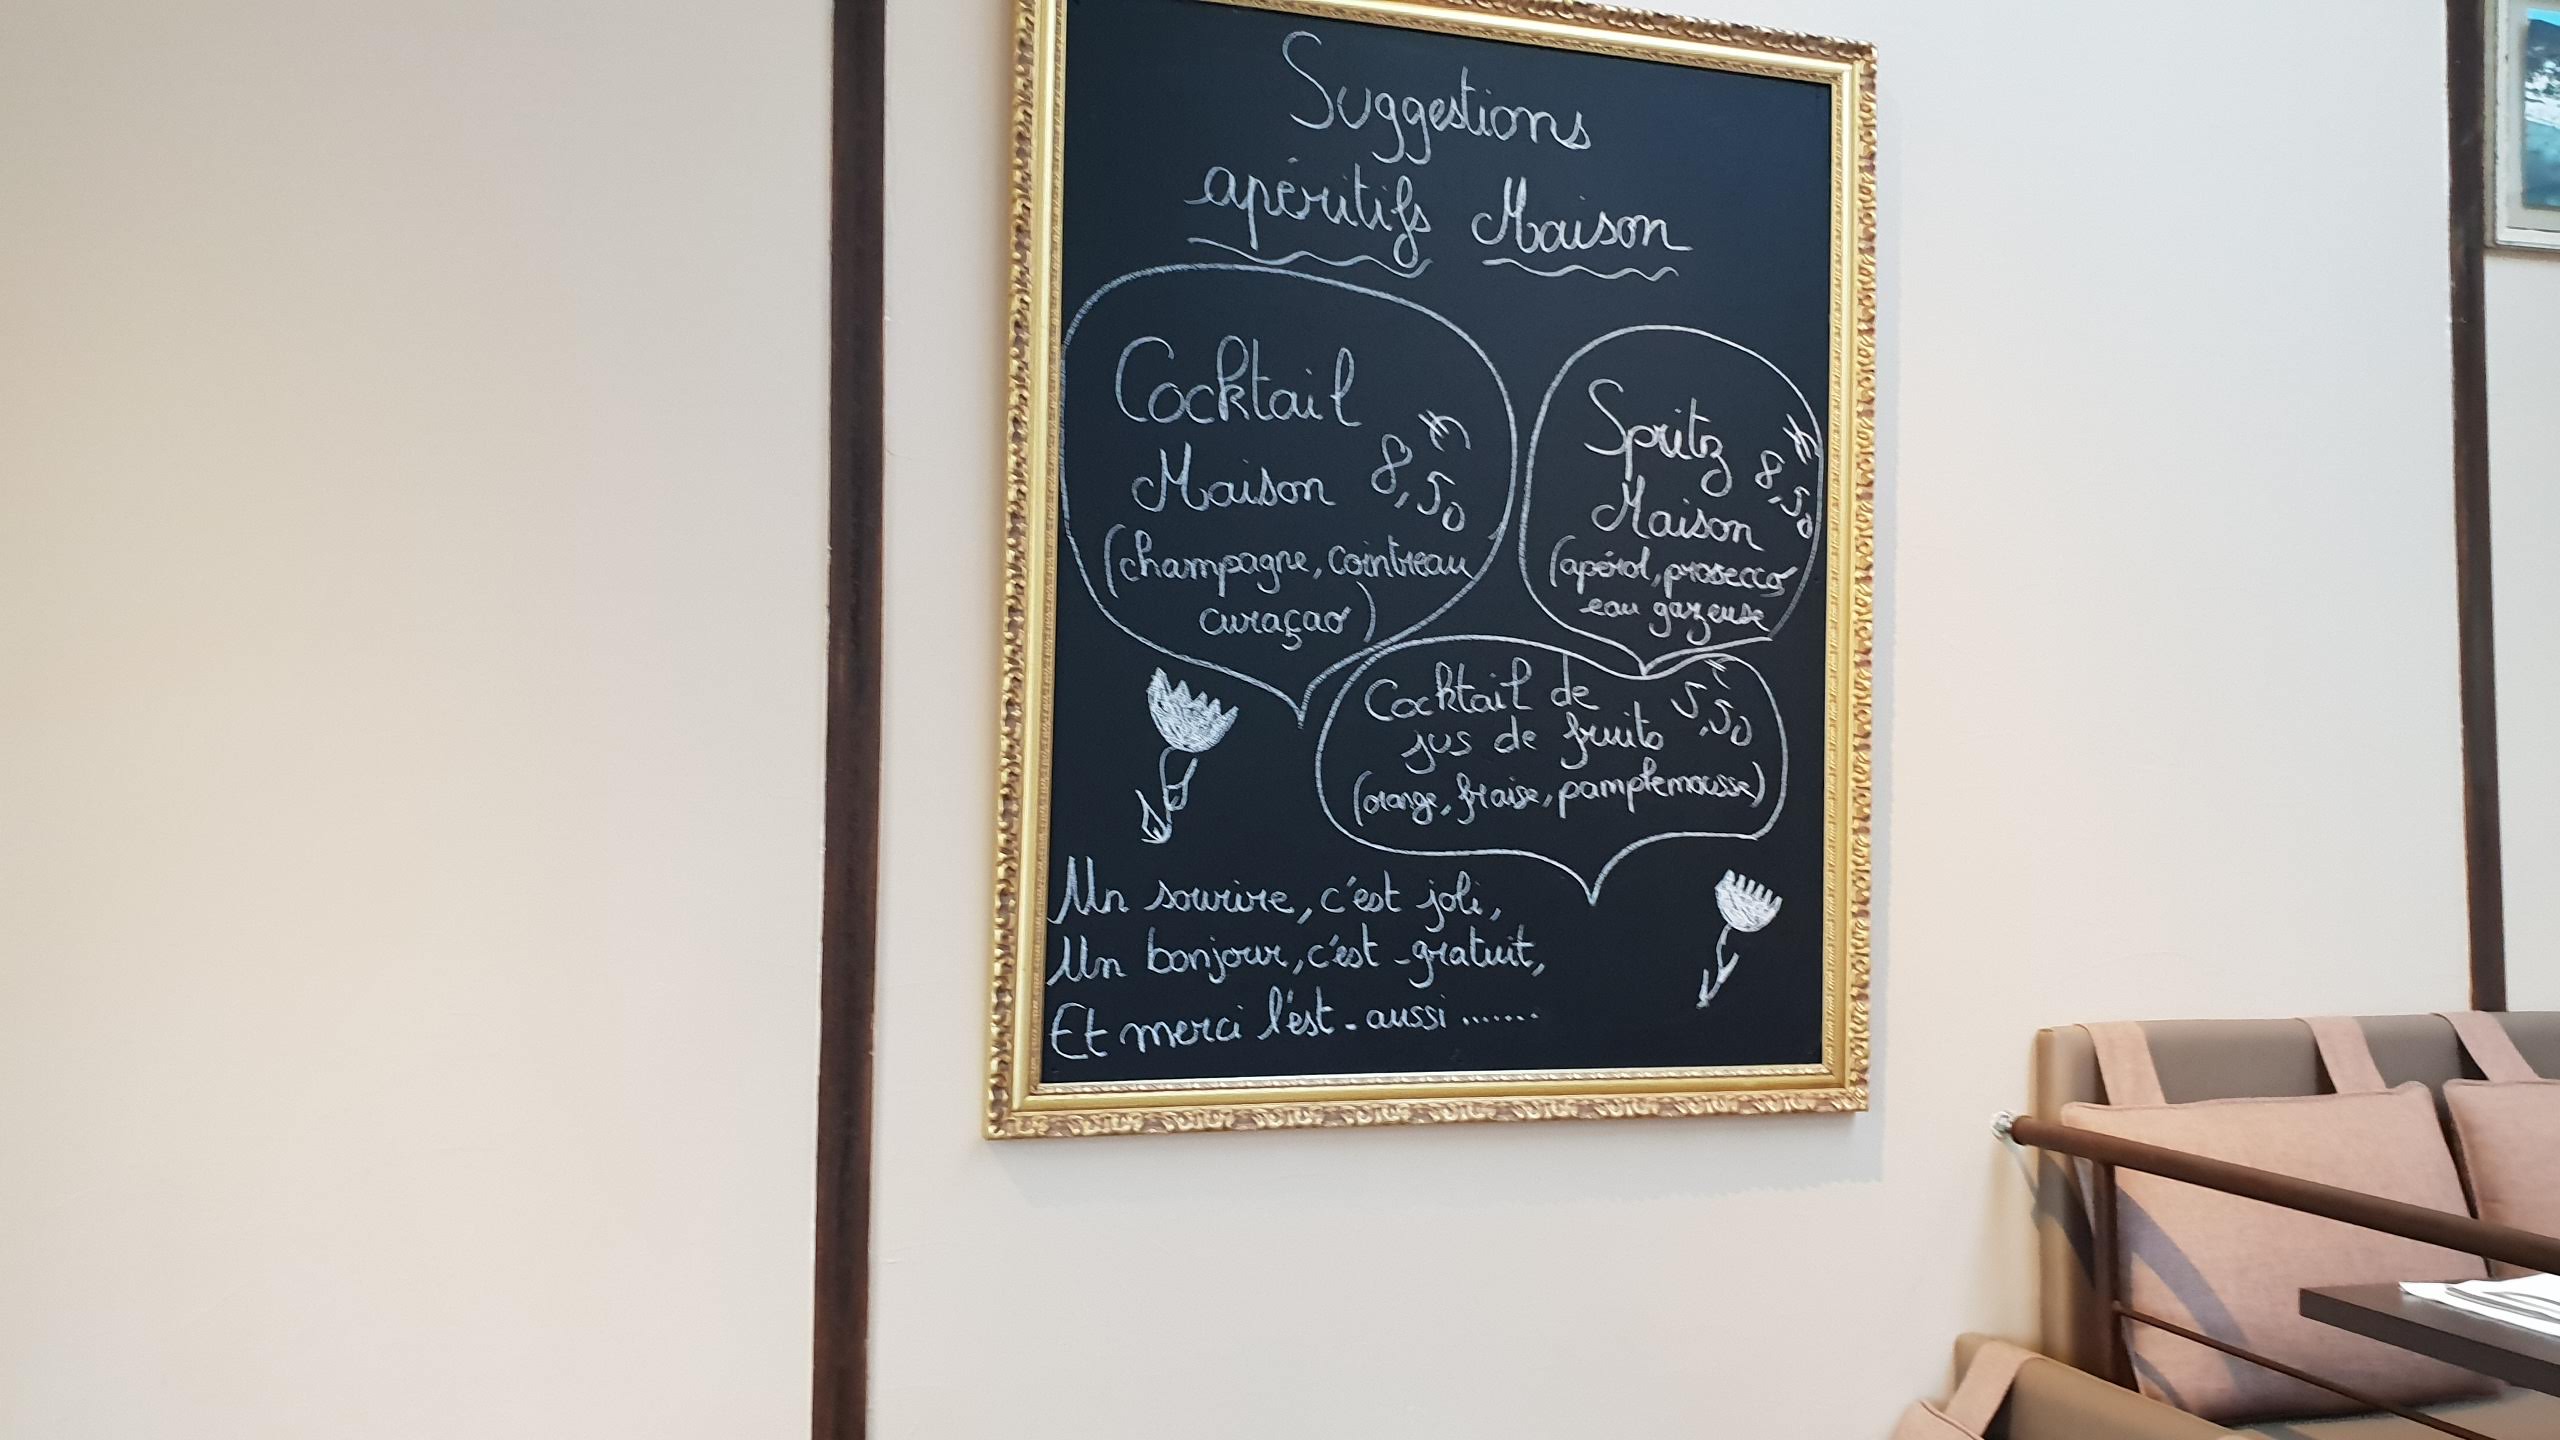 Suggestions
apéritifs Maison
Cocktail
Maison 8,50 €
(champagne, cointreau
curaçao)
Spritz
Maison 8,50 €
(apérol, prosecco,
eau gazeuse
Cocktail de
jus de fruits 5,50 €
(orange, fraise, pamplemousse)
Un sourire, c'est joli,
Un bonjour, c'est gratuit,
Et merci l'est aussi .......